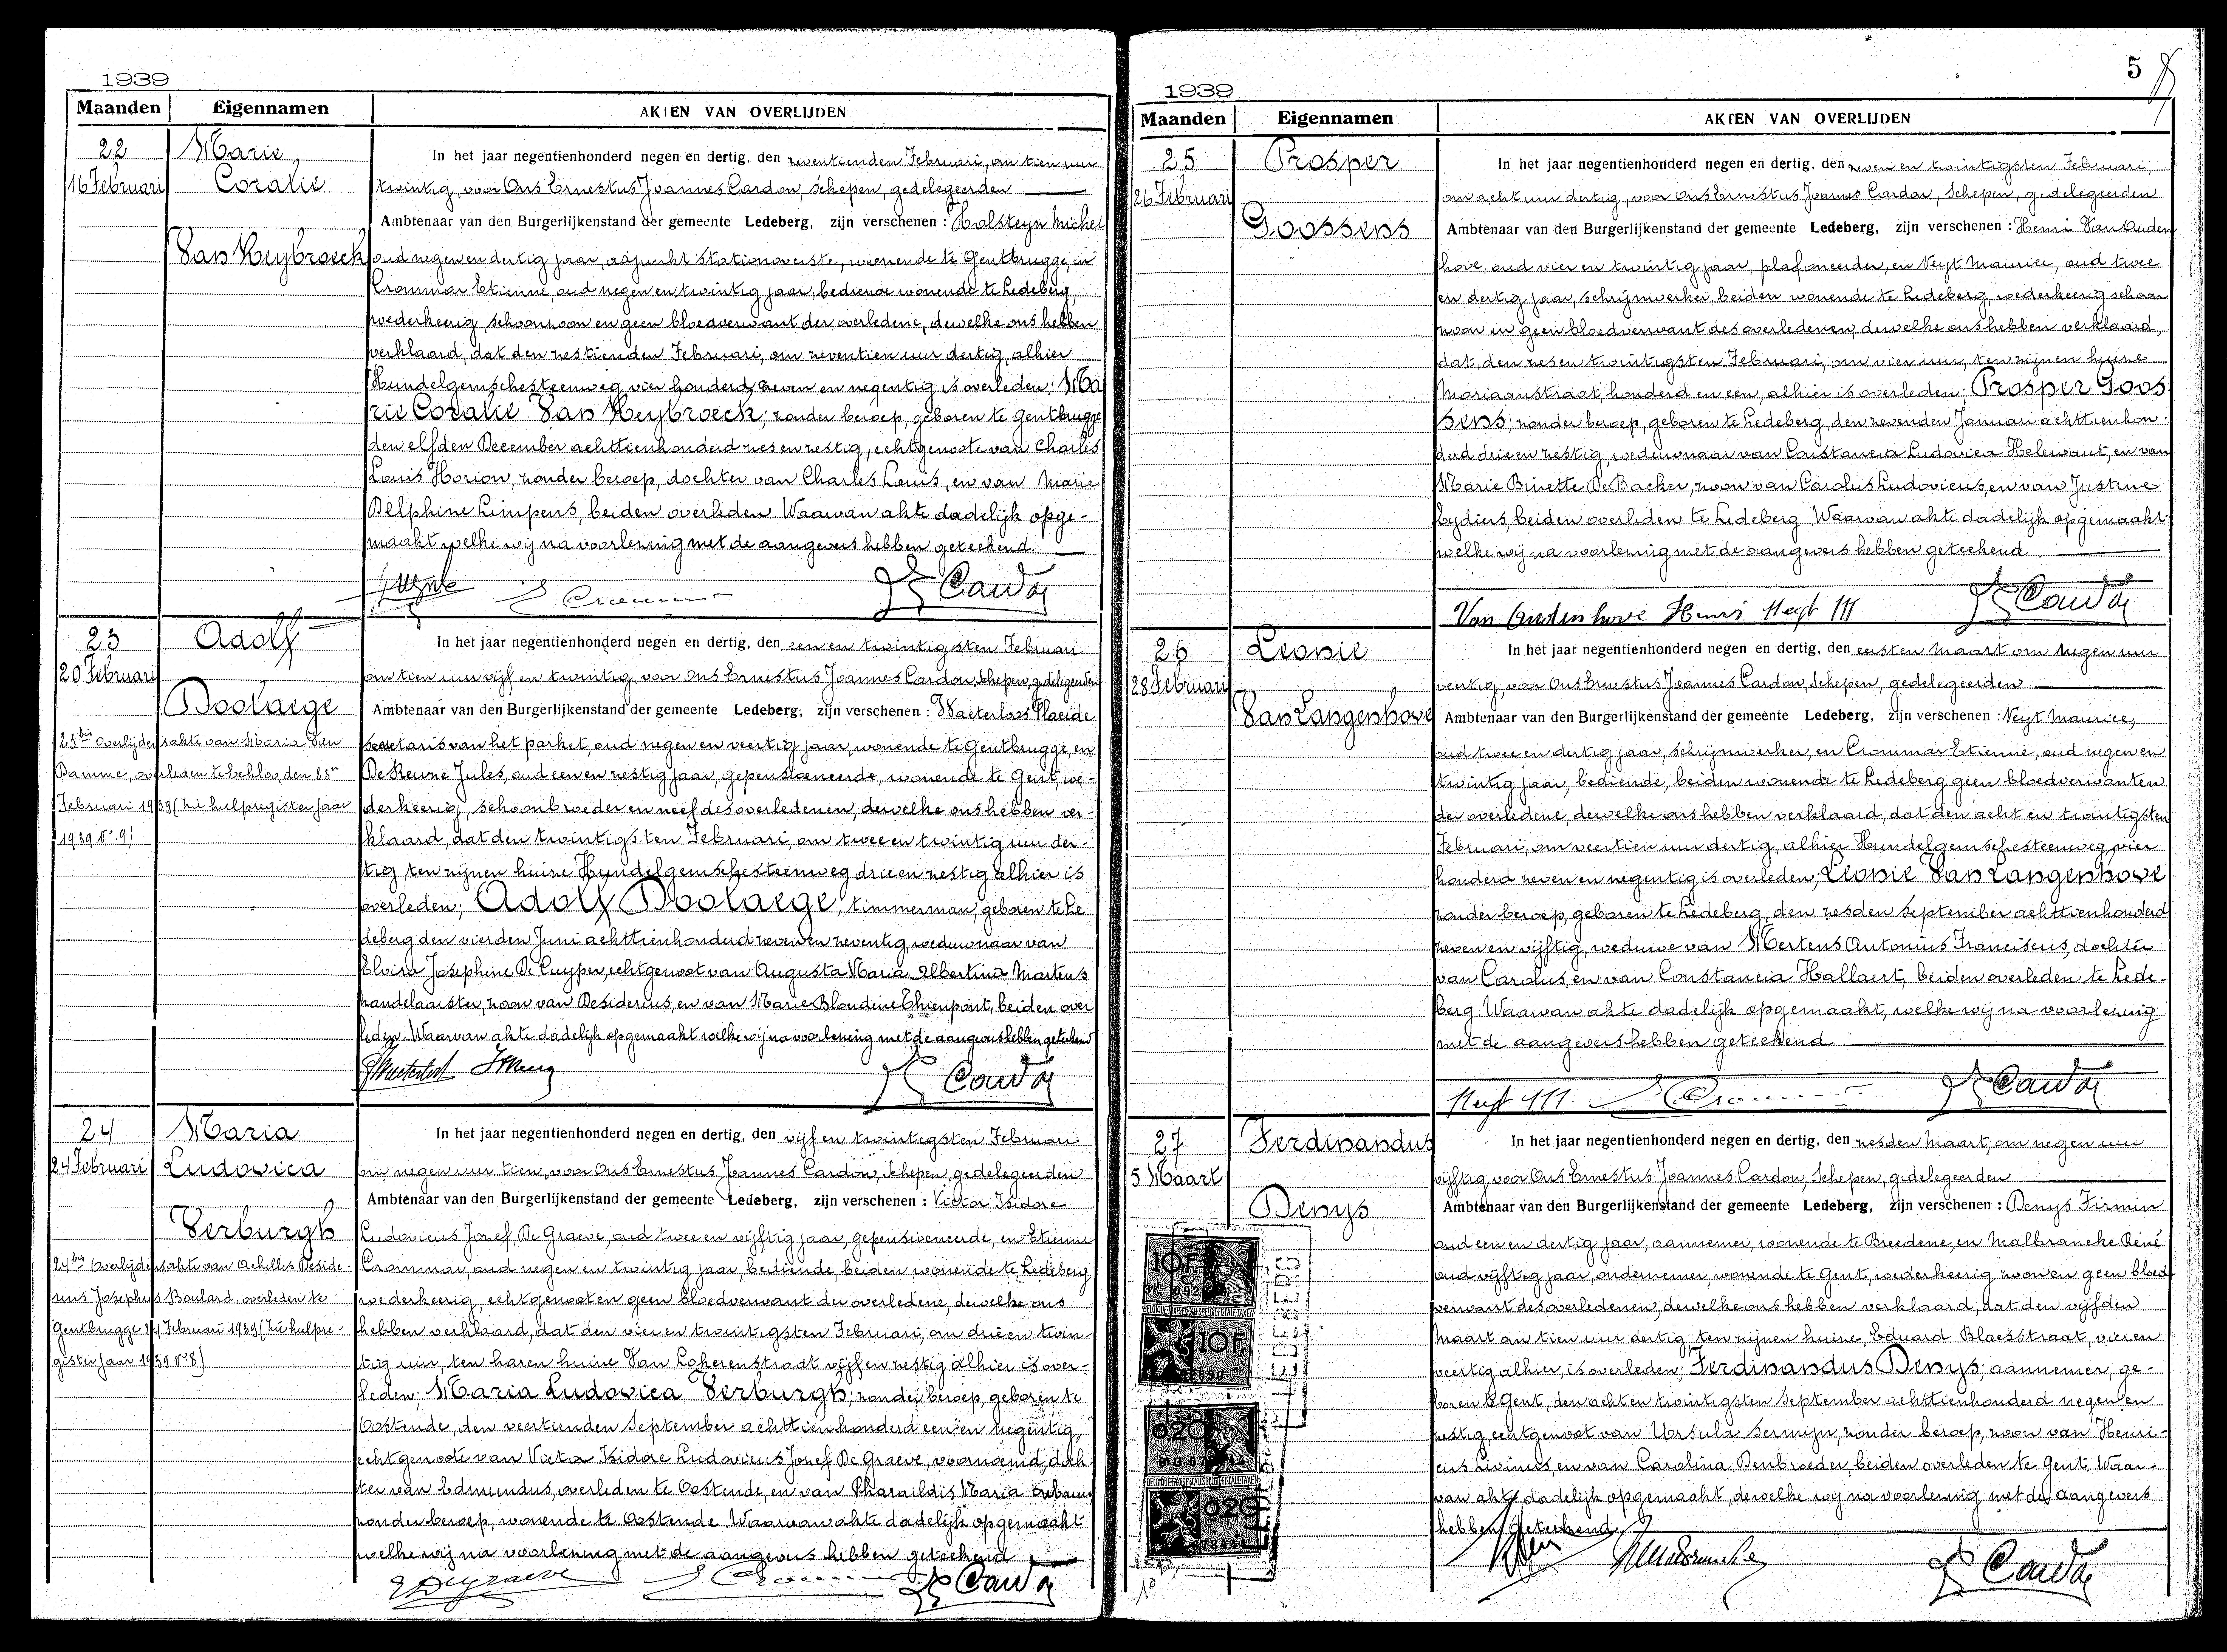 1939
Maanden Eigennamen AKTEN VAN OVERLIJDEN
22
16 Februari
Marie
Coralie
Van Keybroeck
In het jaar negentienhonderd negen en dertig, den zeventienden Februari, om tien uur
twintig, voor Ons Ernestus Joannes Cardon, Schepen, gedelegeerden
Ambtenaar van den Burgerlijkenstand der gemeente Ledeberg, zijn verschenen : Holsteyn Michel
oud negen en dertig jaar, adjunkt stationoverste, wonende te Gentbrugge, en
Crommar Etienne, oud negen en twintig jaar, bediende wonende te Ledeberg,
wederkeerig schoonzoon en geen bloedverwant der overledene, dewelke ons hebben
verklaard, dat den zestienden Februari, om zeventien uur dertig, alhier
Hundelgemschesteenweg vier honderd zeven en negentig is overleden: Ma
rie Coralie Van Keybroeck; zonder beroep, geboren te Gentbrugge
den elfden December achttienhonderd zes en zestig, echtgenoote van Charles
Louis Horion, zonder beroep, dochter van Charles Louis, en van Marie
Delphine Limpens, beiden overleden. Waarvan akte dadelijk opge-
maakt welke wij na voorlezing met de aangevers hebben geteekend.
E Crommar
Cardon
23
20 Februari
Adolf
Doolaege
23bis Overlijdensakte van Maria Van
Damme, overleden te Eekloo, den 15n
Februari 1939 (zie hulpregister jaar
1939 No. 9)
In het jaar negentienhonderd negen en dertig, den een en twintigsten Februari
om tien uur vijf en twintig, voor Ons Ernestus Joannes Cardon, Schepen, gedelegeerden
Ambtenaar van den Burgerlijkenstand der gemeente Ledeberg, zijn verschenen : Waeterloos Placide
secretaris van het parket, oud negen en veertig jaar, wonende te Gentbrugge, en
De Keune Jules, oud een en zestig jaar, gepensioeneerde, wonende te Gent, we-
derkeerig, schoonbroeder en neef des overledenen, dewelke ons hebben ver-
klaard, dat den twintigsten Februari, om twee en twintig uur der-
tig ten zijnen huize Hundelgemschesteenweg drie en zestig alhier is
overleden; Adolf Doolaege, timmerman, geboren te Le
deberg den vierden Juni achttienhonderd zeven en zeventig, weduwnaar van
Elvira Josephine De Cuyper, echtgenoot van Augusta Maria Albertina Martens
handelaarster, zoon van Desiderius, en van Marie Blondine Thienpont, beiden over
leden. Waarvan akte dadelijk opgemaakt welke wij na voorlezing met de aangevers hebben geteekend
Cardon
24
24 Februari
Maria
Ludovica
Verburgh
24bis Overlijdensakte van Achelles Deside-
rius Josephus Boulard, overleden te
Gentbrugge 14 Februari 1939 (zie hulpre-
gister jaar 1939 No 8)
In het jaar negentienhonderd negen en dertig, den vijf en twintigsten Februari
om negen uur tien, voor Ons Ernestus Joannes Cardon, Schepen, gedelegeerden
Ambtenaar van den Burgerlijkenstand der gemeente Ledeberg, zijn verschenen : Victor Isidore
Ludovicus Jozef, De Graeve, oud twee en vijftig jaar, gepensioneerde, en Etienne
Crommar, oud negen en twintig jaar, bediende, beiden wonende te Ledeberg
wederkeerig, echtgenoot en geen bloedverwant der overledene, dewelke ons
hebben verklaard, dat den vier en twintigsten Februari, om drie en twin-
tig uur, ten haren huize Van Lokerenstraat vijf en zestig alhier is over-
leden; Maria Ludovica Verburgh; zonder beroep, geboren te
Oostende, den veertienden September achttienhonderd een en negentig,
echtgenoote van Victor Isidore Ludovicus Jozef De Graeve, voornoemd, doch
ter van Edmundus, overleden te Oostende, en van Pharaildis Maria
zonder beroep, wonende te Oostende. Waarvan akte dadelijk opgemaakt
welke wij na voorlezing met de aangevers hebben geteekend
V Degraeve
E Crommar
Cardon
5
1939
Maanden Eigennamen AKTEN VAN OVERLIJDEN
25
26 Februari
Prosper
Goossens
In het jaar negentienhonderd negen en dertig, den zeven en twintigsten Februari,
om acht uur dertig, voor Ons Ernestus Joannes Cardon, Schepen, gedelegeerden
Ambtenaar van den Burgerlijkenstand der gemeente Ledeberg, zijn verschenen : Henri Van Auden
hove, oud vier en twintig jaar, plafoneerder, en Neyt Maurice, oud twee
en dertig jaar, schrijnwerker, beiden wonende te Ledeberg, wederkeerig schoon
zoon en geen bloedverwant des overledenen, dewelke ons hebben verklaard,
dat, den zes en twintigsten Februari, om vier uur, ten zijnen huize
Moriaanstraat, honderd en een, alhier is overleden; Prosper Goos
sens; zonder beroep, geboren te Ledeberg, den zevenden Januari achttienhon-
derd drie en zestig, weduwnaar van Constancia Ludovica Helewaut, en van
Marie Binette De Backer, zoon van Carolus Ludovicus, en van Justine
Lydiers, beiden overleden te Ledeberg. Waarvan akte dadelijk opgemaakt
welke wij na voorlezing met de aangevers hebben geteekend.
Van Audenhove Henri Neyt M
Cardon
26
28 Februari
Leonie
Van Langenhove
In het jaar negentienhonderd negen en dertig, den eersten Maart om negen uur
veertig, voor Ons Ernestus Joannes Cardon, Schepen, gedelegeerden
Ambtenaar van den Burgerlijkenstand der gemeente Ledeberg, zijn verschenen : Neyt Maurice,
oud twee en dertig jaar, schrijnwerker, en Crommar Etienne, oud negen en
twintig jaar, bediende, beiden wonende te Ledeberg geen bloedverwanten
der overledene, dewelke ons hebben verklaard, dat den acht en twintigsten
Februari, om veertien uur dertig, alhier Hundelgemschesteenweg, vier
honderd zeven en negentig is overleden; Leonie Van Langenhove
zonder beroep, geboren te Ledeberg, den zesden September achttienhonderd
zeven en vijftig, weduwe van Mertens Antonius Franciscus, dochter
van Carolus, en van Constancia Hallaert, beiden overleden te Lede-
berg. Waarvan akte dadelijk opgemaakt, welke wij na voorlezing
met de aangevers hebben geteekend.
Neyt M
E Crommar
Cardon
27
5 Maart
Ferdinandus
Denys
In het jaar negentienhonderd negen en dertig, den zesden Maart, om negen uur
vijftig, voor Ons Ernestus Joannes Cardon, Schepen, gedelegeerden
Ambtenaar van den Burgerlijkenstand der gemeente Ledeberg, zijn verschenen : Denys Firmin
oud een en dertig jaar, aannemer, wonende te Breedene, en Malbrancke René
oud vijftig jaar, ondernemer, wonende te Gent, wederkeerig zoon en geen bloed
verwant des overledenen, dewelke ons hebben verklaard, dat den vijfden
Maart om tien uur dertig, ten zijnen huize, Eduard Blaesstraat, vier en
veertig alhier, is overleden; Ferdinandus Denys; aannemer, ge-
boren te Gent, den acht en twintigsten September achttienhonderd negen en
zestig, echtgenoot van Ursula Sermijn, zonder beroep, zoon van Henri-
cus Livinus, en van Carolina Denbroeder, beiden overleden te Gent. Waar-
van akte dadelijk opgemaakt, dewelke wij na voorlezing met de aangevers
hebben geteekend.
Malbrancke
Cardon
10 F.
10 F.
0.20
0.20